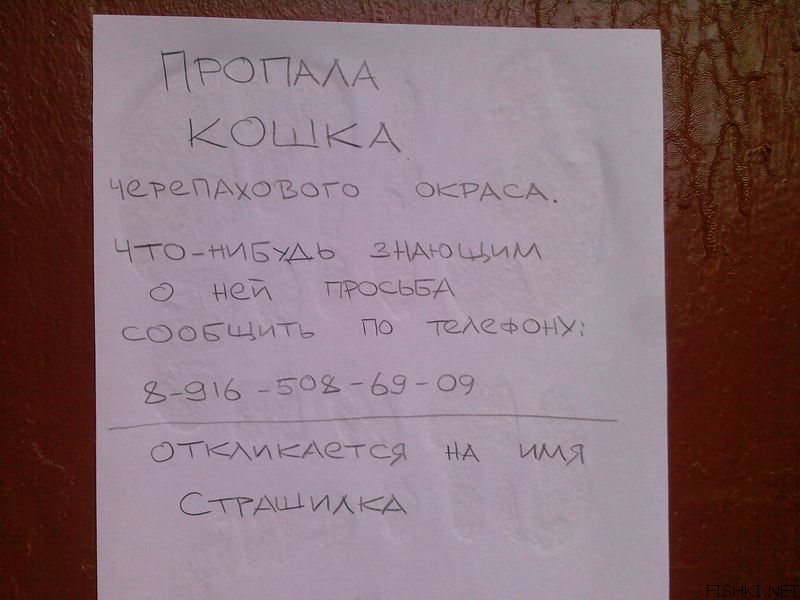 ПРОПАЛА
КОШКА
ЧЕРЕПАХОВОГО ОКРАСА.
ЧТО-НИБУДЬ ЗНАЮЩИМ
О НЕЙ ПРОСЬБА
СООБЩИТЬ ПО ТЕЛЕФОНУ:
8-916-508-69-09
ОТКЛИКАЕТСЯ НА ИМЯ
СТРАШИЛКА
FISHKI.NET